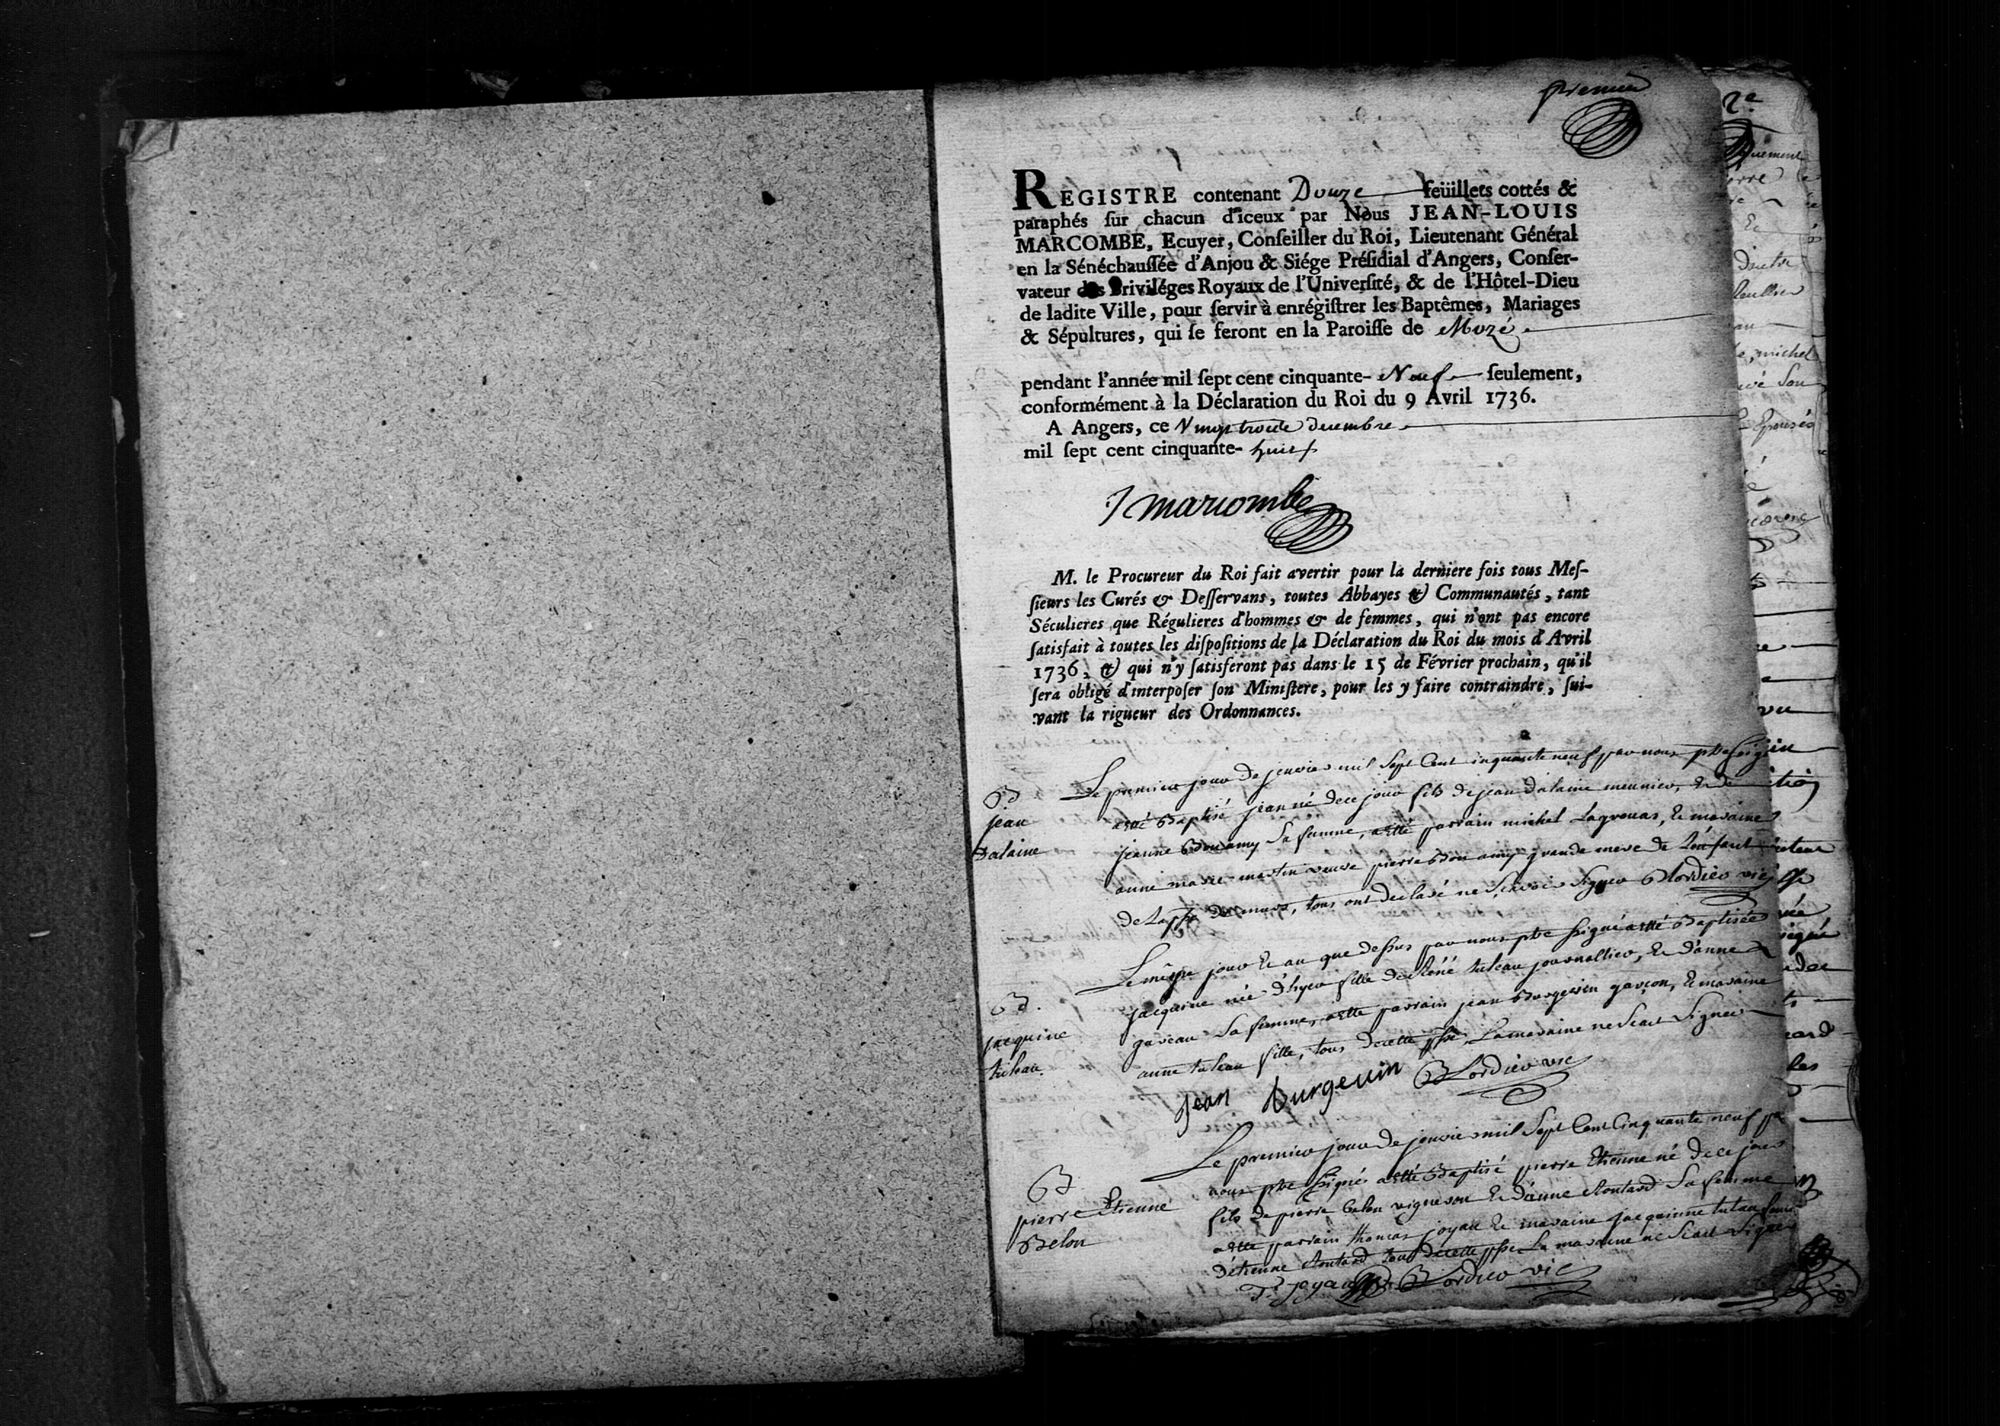 premier
REGISTRE contenant Douze feüillets cottés &
paraphés sur chacun d'iceux par Nous JEAN-LOUIS
MARCOMBE, Ecuyer, Conseiller du Roi, Lieutenant Général
en la Sénéchaussée d'Anjou & Siége Présidial d'Angers, Conser-
vateur des Priviléges Royaux de l'Université, & de l'Hôtel-Dieu
de ladite Ville, pour servir à enrégistrer les Baptêmes, Mariages
& Sépultures, qui se feront en la Paroisse de Mozé
pendant l'année mil sept cent cinquante- Neuf seulement,
conformément à la Déclaration du Roi du 9 Avril 1736.
A Angers, ce Vingt trois de decembre
mil sept cent cinquante- huit
J marcombe
M. le Procureur du Roi fait avertir pour la derniere fois tous Mes-
sieurs les Curés & Desservans, toutes Abbayes & Communautés, tant
Séculieres que Régulieres d'hommes & de femmes, qui n'ont pas encore
satisfait à toutes les dispositions de la Déclaration du Roi du mois d'Avril
1736, & qui n'y satisferont pas dans le 15 de Février prochain, qu'il
sera obligé d'interposer son Ministere, pour les y faire contraindre, sui-
vant la rigueur des Ordonnances.
B
jean
Dalaine
Le premier jour de jenvier mil sept Cent cinquante neuf par nous pbre soussigné
a eté Baptisé jean né de ce jour fils de jean Dalaine meunier, et de
jeanne Bonamy sa femme, a eté parrain michel Lagrouas, et maraine
anne marie martin veuve pierre Bonamy grande mere de L'enfant
de la psse de murs, tous ont declaré ne sçavoir signer Blordier vic
B.
jacquine
tuleau
Le même jour et an que dessus par nous pbre ssigné a eté Baptisée
jacquine née d'hyer fille de René tuleau journallier, et d'anne
gaveau sa femme, a eté parrain jean Burgevin garçon, et maraine
anne tuleau fille, tous de cette psse, La maraine ne sçait signer
jean burgevin Blordier vic
B
pierre Etienne
Belon
Le premier jour de jenvier mil sept Cent Cinquante neuf par
nous pbre ssigné a eté Baptisé pierre Etienne né de ce jour
fils de pierre belon vigneron et d'anne Rontard sa femme
a eté parrain thomas joyau et maraine jacquinne tuleau femme
d'etienne Rontard tous de cette psse La maraine ne sçait signer
T. joyau Blordier vic
2e